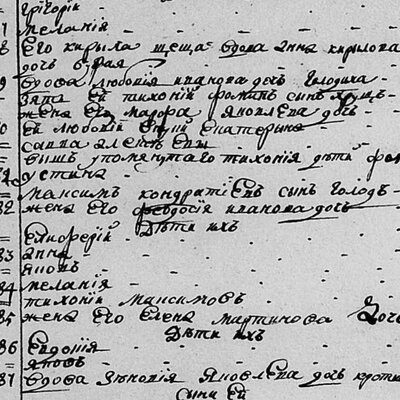 григорій
7 меланія
8 Его кирыла теща вдова анна кирылова
дочь
9 вдова любовія иванова дочь голодиха
зять Ей тихоній фоминъ сынъ
жена Его Марфа яковлева дочь
80 Ей любовіи внуки Екатерина
савва алексѣевы
вышъ упомянутаго тихонія дѣти
устина
Максимъ кондратіевъ сынъ голод
82 жена Его феодосія иванова дочь
Дѣти ихъ
Елиферій
83 анна
яковъ
84 меланія
тихоній Максимовъ
85 жена Его Елена Мартинова дочь
Дѣти ихъ
86 Евдокія
яковъ
87 вдова зѣновія яковлева дочь
сыни Ей